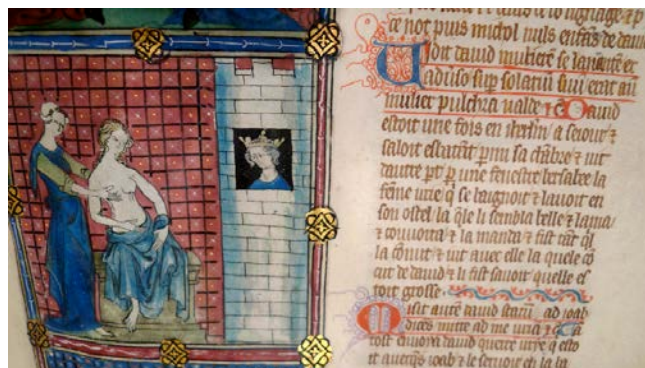 ce not puis michol nuls enfãs de dauid
Uidit dauid mulierẽ se lavãtẽ ex
adũso sup solariũ suũ erat aũ
mulier pulchra valde ⁊ c̃ Dauid
estoit une fois en iherlm̃ a seiour ⁊
saloit esbatãt p̃mi sa chãbre ⁊ uit
dautre pt̃ p̱ une fenestre bersabee la
fẽme urie q̃ se baignoit ⁊ lauoit en
son ostel la q̃le li sembla belle ⁊ lama
⁊ couuoita ⁊ la manda ⁊ fist tãt q̃l
la cõnut ⁊ iut avec elle la quele cõ
cut de dauid ⁊ li fist sauoir quelle es
toit grosse
Misit autẽ dauid ad ioab
dicẽs mitte ad me uriã ⁊ c̃
tost enuoia dauid querre urye q̃ esto
it auecq̃s ioab ⁊ le seruoit en la